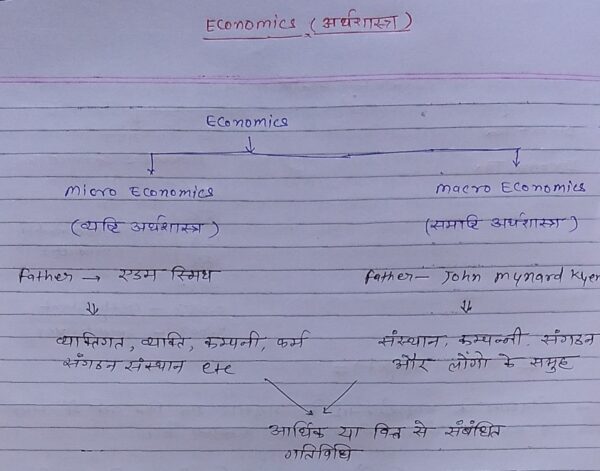 Economics (अर्थशास्त्र)
Economics
Micro Economics
Macro Economics
(व्यष्टि अर्थशास्त्र)
(समष्टि अर्थशास्त्र)
Father → एडम स्मिथ
Father - John mynard Kyen
व्यक्तिगत, व्यक्ति, कम्पनी, फर्म
संगठन संस्थान etc
संस्थान, कम्पन्नी, संगठन
और लोंगो के समुह
आर्थिक या वित्त से संबंधित
गतिविधि